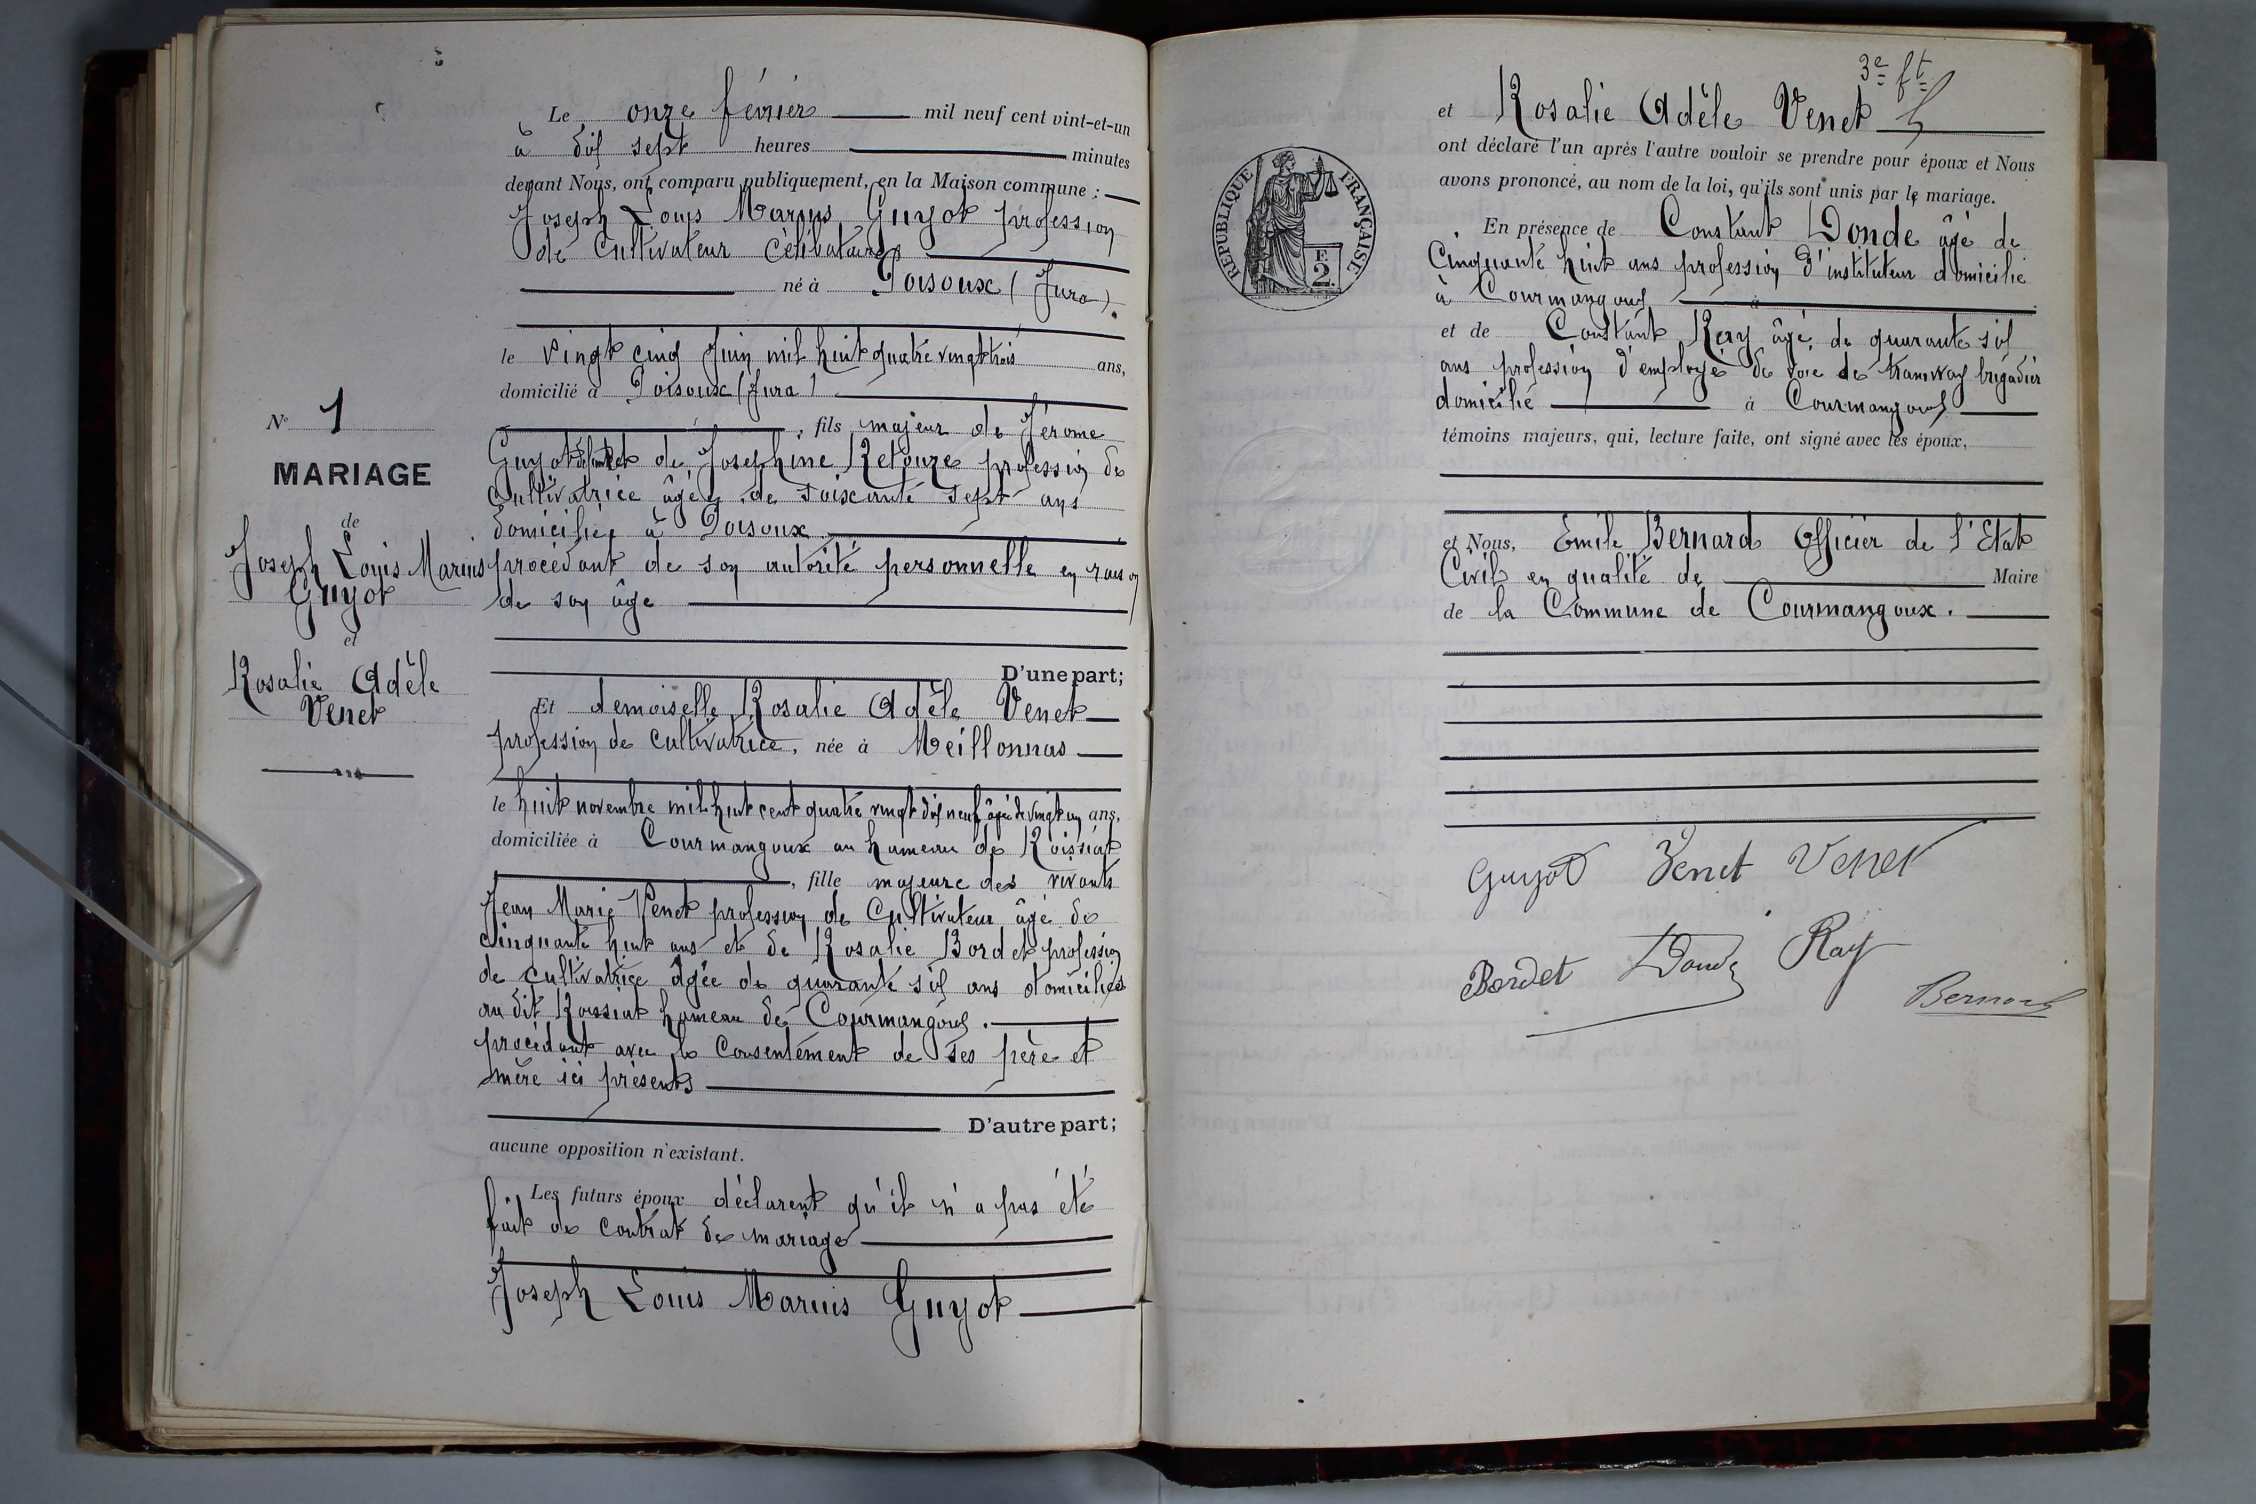 Le onze février mil neuf cent vint-et-un
à dix sept heures minutes
devant Nous, ont comparu publiquement, en la Maison commune :
Joseph Louis Marius Guyot profession
de Cultivateur Célibataire
né à Poisoux (Jura).
le vingt cinq Juin mil huit quatre vingt trois ans,
domicilié à Poisoux (Jura)
N° 1
MARIAGE
de
Joseph Louis Marius
Guyot
et
Rosalie Adèle
Venet
, fils majeur de Jérome
Guyot et de Josephine Retouze profession de
Cultivatrice âgée de soixante sept ans
domiciliée à Poisoux
procédant de son autorité personnelle en raison
de son âge
D'une part;
Et demoiselle Rosalie Adèle Venet
profession de Cultivatrice, née à Meillonnas
le huit novembre mil huit cent quatre vingt dix neuf âgée de vingt un ans,
domiciliée à Courmangoux au hameau de Roissiat
, fille majeure des vivants
Jean Marie Venet profession de Cultivateur âgé de
cinquante huit ans et de Rosalie Bordet profession
de cultivatrice âgée de quarante six ans domiciliés
au dit Roissiat hameau de Courmangoux.
procédant avec le Consentement de ses père et
mère ici présents
D'autre part;
aucune opposition n'existant.
Les futurs époux déclarent qu'il n'a pas été
fait de contrat de mariage
Joseph Louis Marius Guyot
3e ft
et Rosalie Adèle Venet
ont déclaré l'un après l'autre vouloir se prendre pour époux et Nous
avons prononcé, au nom de la loi, qu'ils sont unis par le mariage.
RÉPUBLIQUE FRANÇAISE
E
2
En présence de Constant Donde âgé de
Cinquante huit ans profession d'instituteur domicilié
à Courmangoux à
et de Constant Ray âgé de quarante six
ans profession d'employé de voie de tramway brigadier
domicilié à Courmangoux
témoins majeurs, qui, lecture faite, ont signé avec les époux,
et Nous, Emile Bernard Officier de l'Etat
Civil en qualité de Maire
de la Commune de Courmangoux.
Guyot Venet Venet
Bordet Donde Ray
Bernard